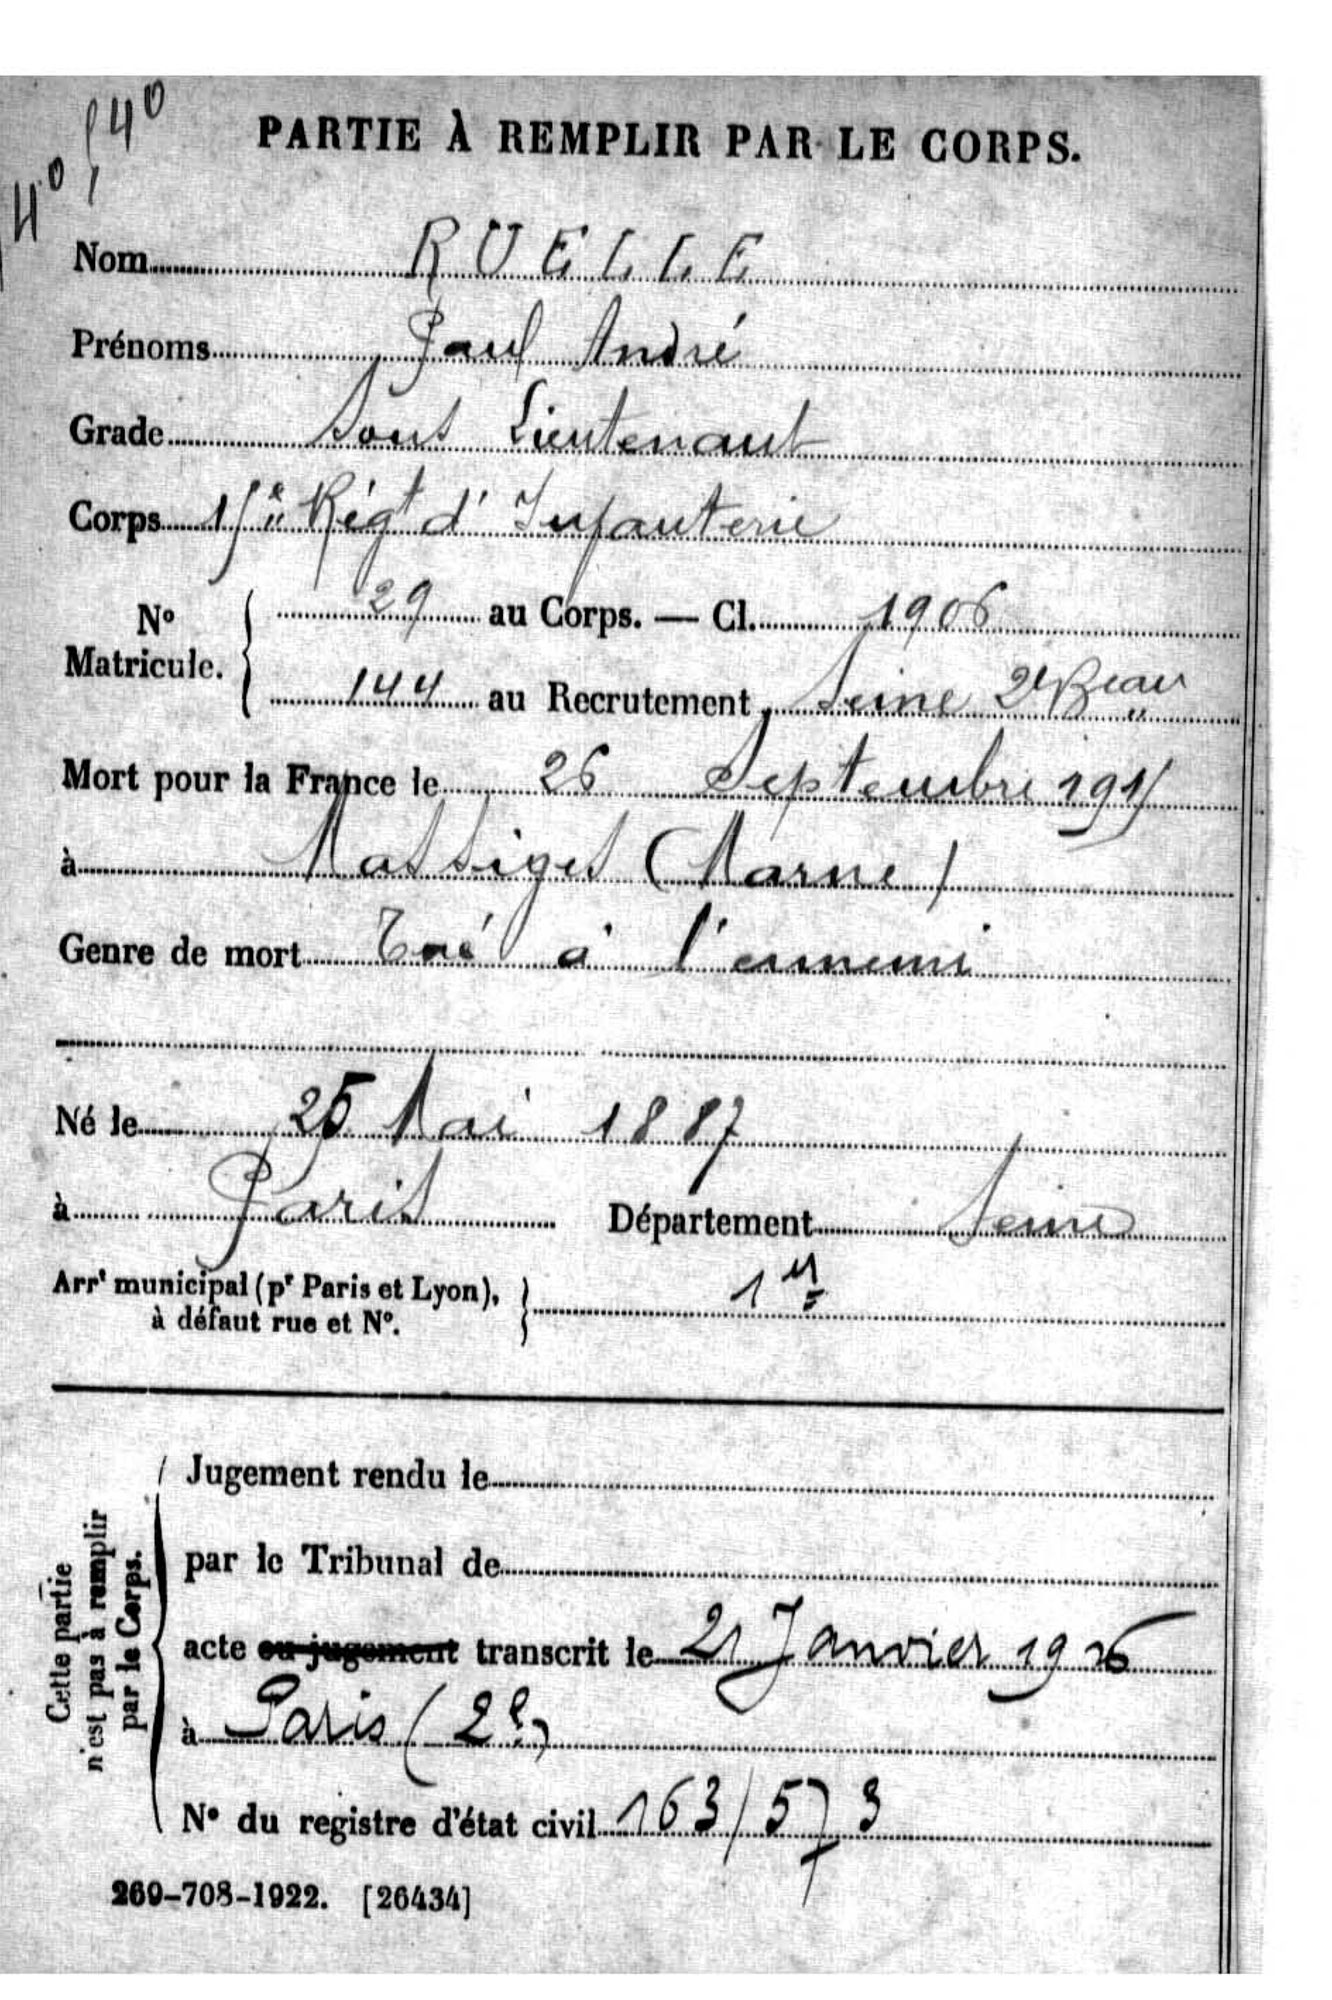 40
40
PARTIE À REMPLIR PAR LE CORPS.
Nom RUELLE
Prénoms Paul André
Grade Sous Lieutenant
Corps 15e Régt d'Infanterie
No Matricule. { 29 au Corps. — Cl. 1906
144 au Recrutement Seine 2e Beau
Mort pour la France le 26 Septembre 1915
à Massiges (Marne)
Genre de mort Tué à l'ennemi
Né le 25 Mai 1887
à Paris Département Seine
Arrt municipal (pr Paris et Lyon), à défaut rue et No. } 1er
Cette partie n'est pas à remplir par le Corps.
Jugement rendu le
par le Tribunal de
acte ou jugement transcrit le 21 Janvier 1916
à Paris (2e)
No du registre d'état civil 163/573
269-708-1922. [26434]